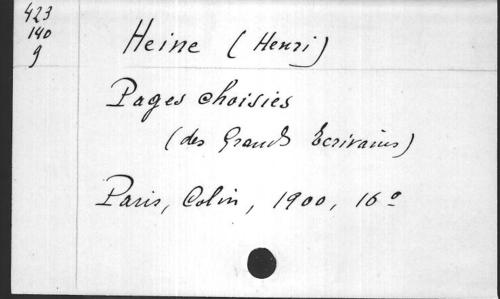 423
140
9
Heine (Henri)
Pages choisies
(des Grands Ecrivains)
Paris, Colin, 1900, 16º